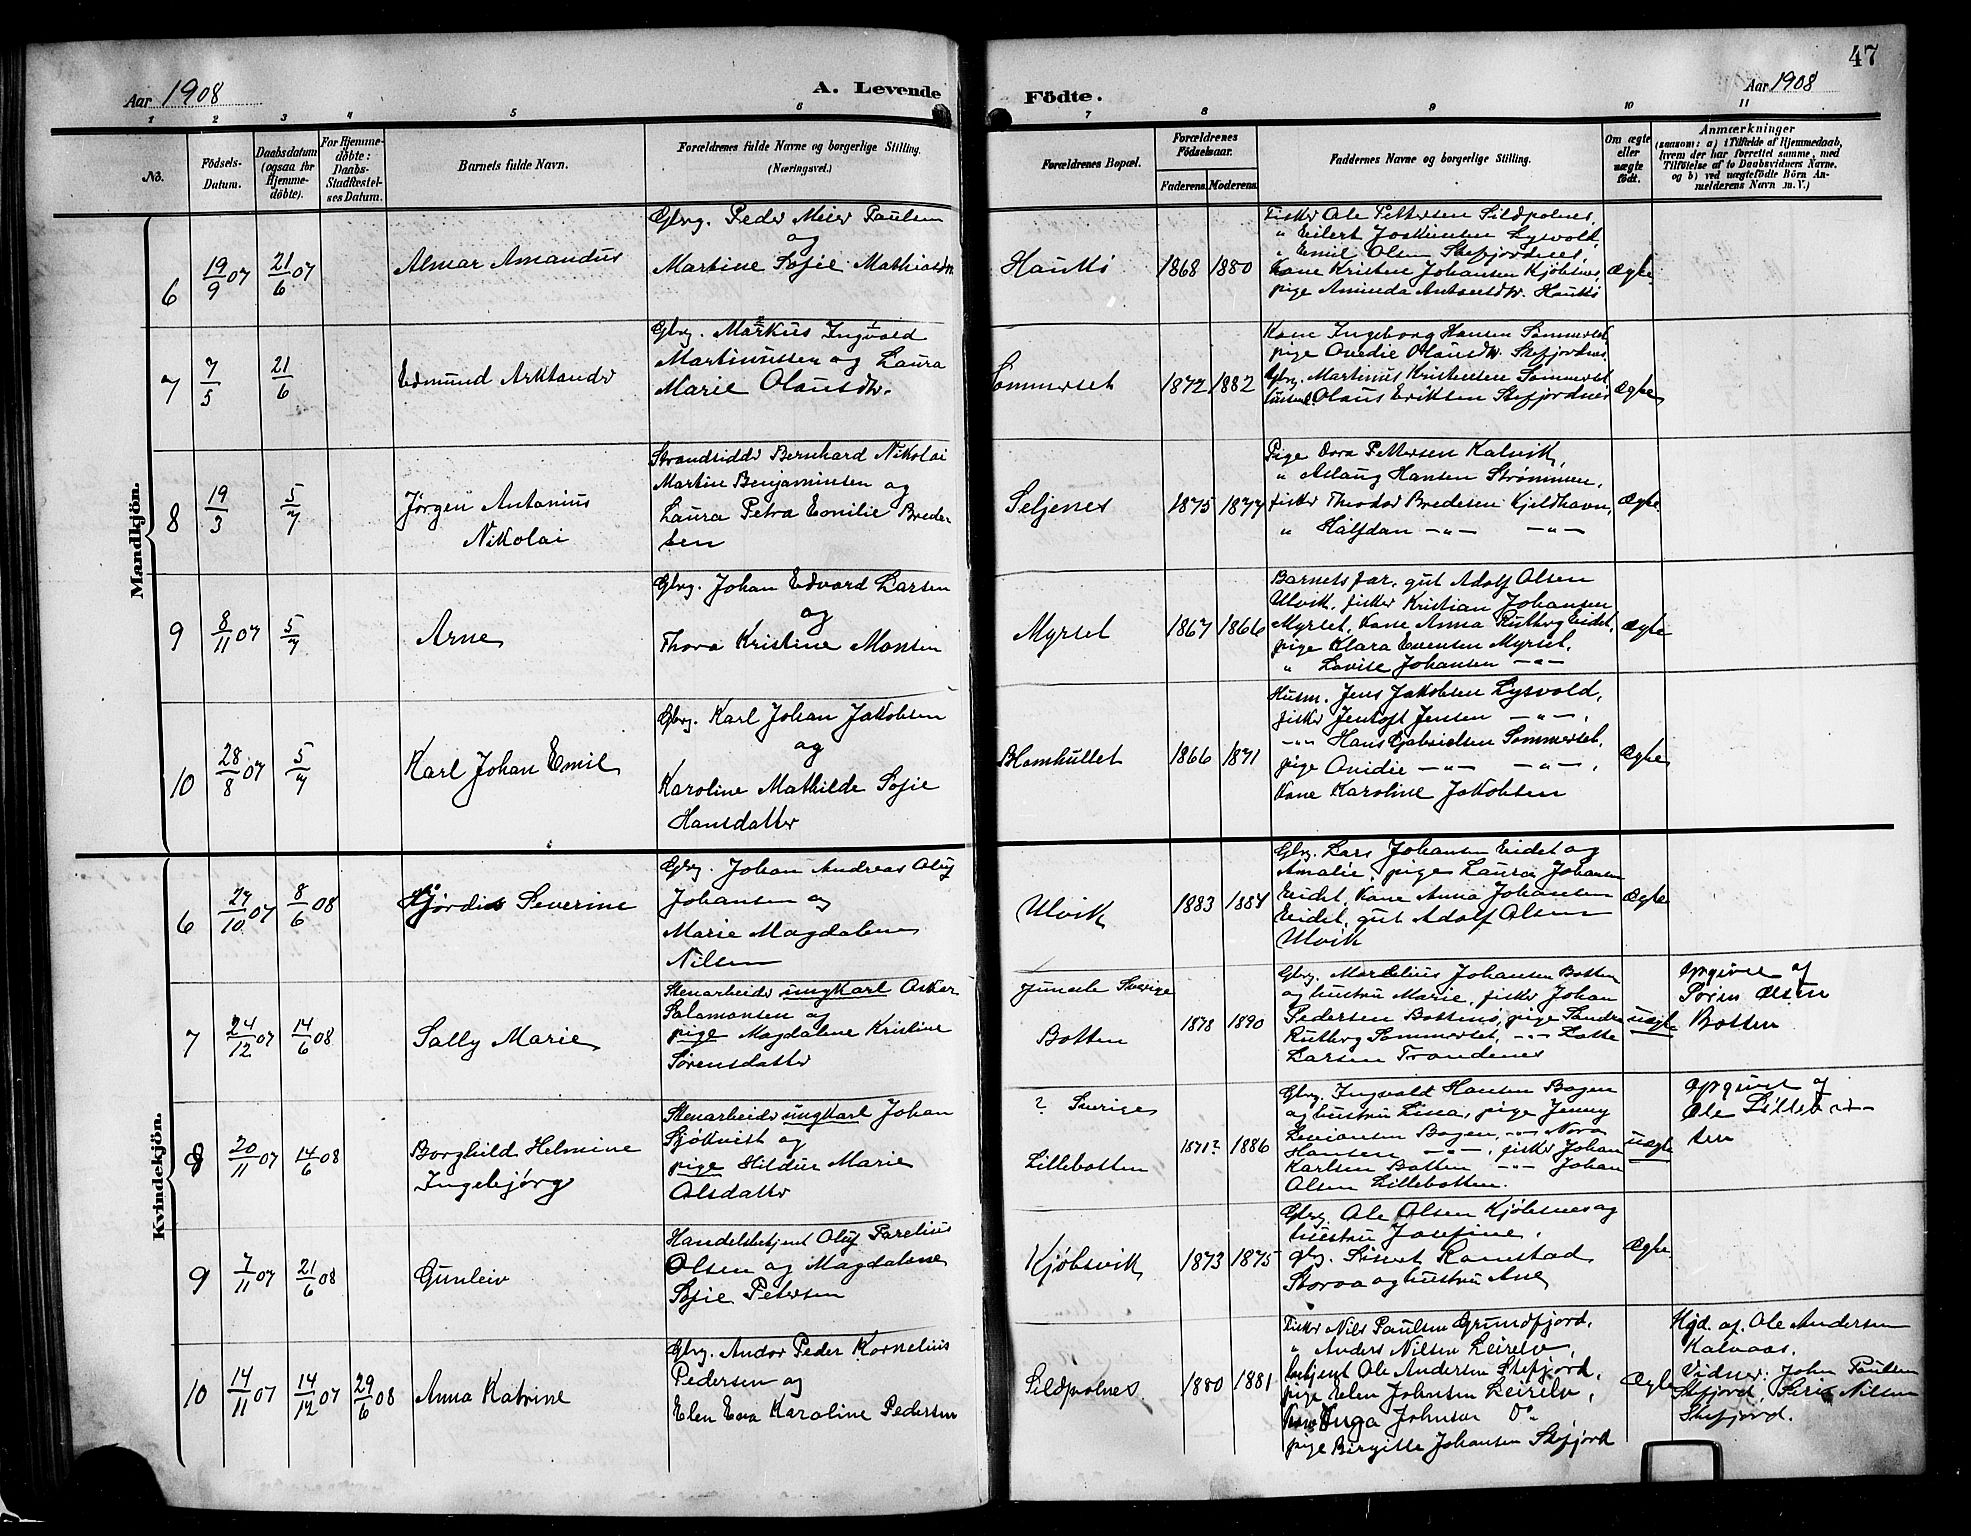 47
Aar 1908
A. Levende
Födte.
Aar 1908
1 2 3 4 5 6 7 8 9 10 11
No.
Födsels-
Datum.
Daabsdatum
(ogsaa for
Hjemme-
döbte).
For Hjemme-
döbte:
Daabs-
Stadfæstel-
ses Datum.
Barnets fulde Navn.
Forældrenes fulde Navne og borgerlige Stilling.
(Næringsvei.)
Forældrenes Bopæl.
Forældrenes
Födselsaar.
Faderens. Moderens.
Faddernes Navne og borgerlige Stilling.
Om ægte
eller
uægte
födt.
Anmærkninger
(saasom: a) i Tilfælde af Hjemmedaab,
hvem der har forrettet samme, med
Tilföielse af to Daabsvidners Navne,
og b) ved uægtefödte Börn An-
melderens Navn m. V.)
Mandkjön.
6
19/9 07
21/6 07
Almar Amandus
Gbrg. Peder Meier Paulsen
og
Martine Sofie Mathiasdtr
Haukö
1868 1880
Fisker Ole Pettersen Sildpolnes,
" Eilert Joakimsen Lysvold,
" Emil Olsen Skefjordnes,
Kone Kristine Johansen Kjöbsnes
pige Aminda Antonsdtr. Haukö
Ægte
7
7/5
21/6
Edmund Arktander
Gbrg. Markus Ingvald
Martinussen og Laura
Marie Olausdtr.
Sommerset
1872 1882
Kone Ingeborg Hansen Sommerset
pige Ovedie Olausdtr. Skefjordnes
Gbrg. Martinus Kristensen Sommerset
Olaus Eriksen Skefjordnes
Ægte
8
19/3
5/7
Jörgen Antonius
Nikolai
Strandsidder Bernhard Nikolai
Martin Benjaminsen og
Laura Petra Emilie Brede-
sen
Seljenes
1875 1877
Pige Dora Pettersen Kalvik,
" Aslaug Hansen Strømmen,
fisker Theodor Bredesen Kjeldhavn,
" Halfdan —"— —"—
Ægte
9
8/11 07
5/7
Arne
Gbrg. Johan Edvard Larsen
og
Thora Kristine Monsen
Myrset
1867 1866
Barnets far, gut Adolf Olsen
Ulvik, fisker Kristian Johansen
Myrset, Kone Anna Rutberg Eidet,
pige Klara Evensen Myrset,
" Lovise Johansen —"—
Ægte
10
28/8 07
5/7
Karl Johan Emil
Gbrg. Karl Johan Jakobsen
og
Karoline Mathilde Sofie
Hansdatter
Blomhullet
1866 1871
Husm. Jens Jakobsen Lysvold,
fisker Jentoft Jensen —"—,
—"— Hans Gabrielsen Sommerset,
pige Ovidie —"— —"—,
Kone Karoline Jakobsen
Ægte
Kvindekjön.
6
27/10 07
8/6 08
Hjördis Severine
Gbrg. Johan Andreas Oluf
Johansen og
Marie Magdalene
Nilsen
Ulvik
1883 1884
Gbrg. Lars Johansen Eidet og
Amalie, pige Laura Johansen
Eidet, Kone Anna Johansen
Eidet, gut Adolf Olsen
Ulvik
Ægte
7
24/12 07
14/6 08
Sally Marie
Stenarbeider ungkarl Oskar
Salamonsen og
pige Magdalene Kristine
Sörensdatter
Sverige
Botten
1878 1890
Gbrg. Marselius Johansen Botten
og hustru Marie, fisker Johan
Pedersen Bottenes, pige Sandra
Rutberg Sommerset, —"— Lotte
Larsen Trondenes
uægte
Opgivet af
Sören Olsen
Botten
8
20/11 07
14/6 08
Borghild Helmine
Ingebjörg
Stenarbeider ungkarl Johan
Sjökvist og
pige Hildur Marie
Olsdatter
? Sverige
Lillebotten
1871? 1886
Gbrg. Ingvald Hansen Bogen
og hustru Lina, pige Jenny
Bogen, —"— Nora
Hansen —"—, fisker Johan
Karlsen Botten —"— Johan
Olsen Lillebotten.
uægte
Opgivet af
Ole Lillebot-
ten
9
7/11 07
21/6 08
Gunleiv
Handelsbetjent Oluf Parelius
Olsen og Magdalene
Sofie Petersen
Kjöbsvik
1873 1875
Gbrg. Ole Olsen Kjöbsnes og
hustru Josefine,
Gbrg. Sivert Ramstad
Storaa og hustru Ane
Ægte
10
14/11 07
14/12 07
29/6 08
Anna Katrine
Gbrg. Andor Peder Kornelius
Pedersen og
Elen Eva Karoline Pedersen
Sildpolnes
1880 1881
Fisker Nils Paulsen Grundfjord,
" Anders Nilsen Leirelv,
betjent Ole Andersen Skefjord,
pige Elen Johnsen Leirelv,
Kone Inga Johnsen Do
pige Birgitte Johansen Skefjord
Ægte
Hjd. af. Ole Andersen
Kalvaas.
Vidner: John Paulsen
Skefjord, Siri Nilsen
Skefjord.